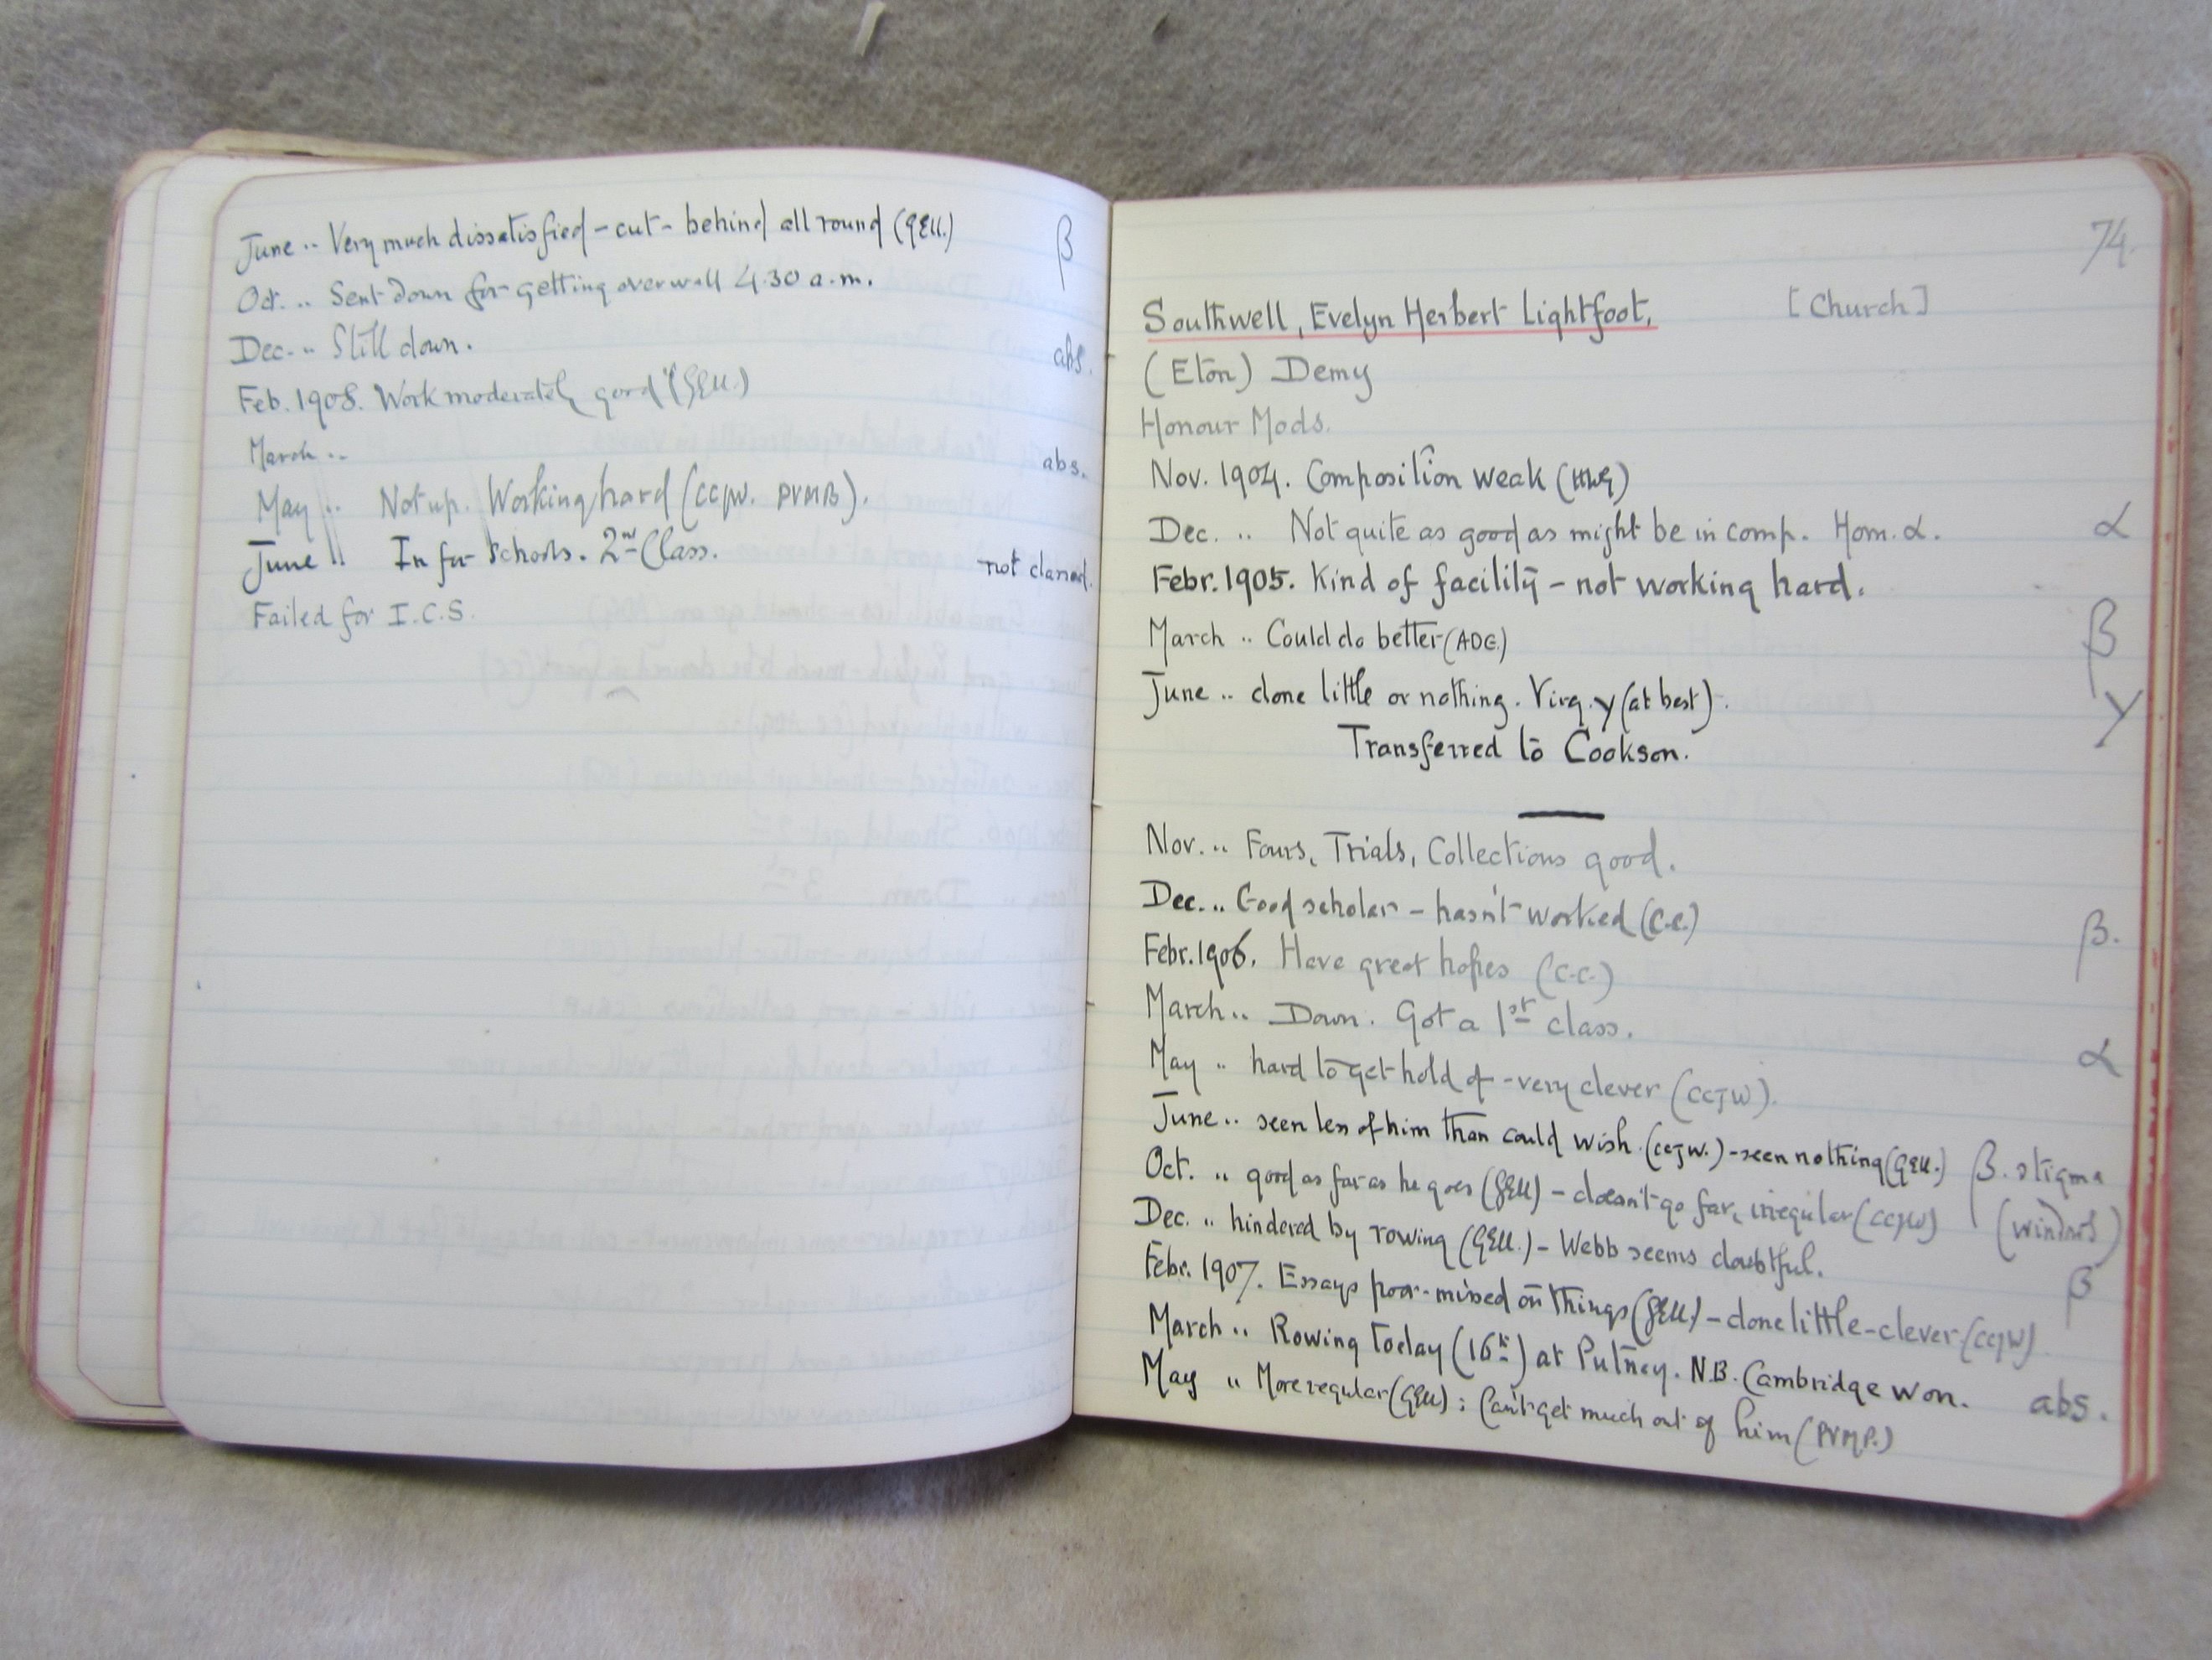 June .. Very much dissatisfied - cut - behind all round (GEU.) β
Oct. .. Sent down for getting over wall 4.30 a.m.
Dec. .. Still down. abs.
Feb. 1908. Work moderately good (GEU.)
March .. abs.
May .. Not up. Working hard (CCJW. PVMB).
June .. In for Schools. 2nd Class. not classed.
Failed for I.C.S.
74.
Southwell, Evelyn Herbert Lightfoot, [Church]
(Eton) Demy
Honour Mods.
Nov. 1904. Composition weak (HWG)
Dec. .. Not quite as good as might be in comp. Hom. α. α
Febr. 1905. Kind of facility - not working hard.
March .. Could do better (ADG.) β
June .. done little or nothing. Virg. γ (at best). γ
Transferred to Cookson.
Nov. .. Fours, Trials, Collections good.
Dec. .. Good scholar - hasn't worked (C.C.) β.
Febr. 1906. Have great hopes (C.C.)
March .. Down. Got a 1st class. α
May .. hard to get hold of - very clever (CCJW).
June .. seen less of him than could wish. (CCJW.) - seen nothing (GEU.) β. stigma
Oct. .. good as far as he goes (GEU) - doesn't go far, irregular (CCJW)
Dec. .. hindered by rowing (GEU.) - Webb seems doubtful. β
Febr. 1907. Essays poor - mixed on things (GEU) - done little - clever (CCJW)
March .. Rowing today (16th) at Putney. N.B. Cambridge won. abs.
May .. More regular (GEU) : Can't get much out of him (PVMB.)